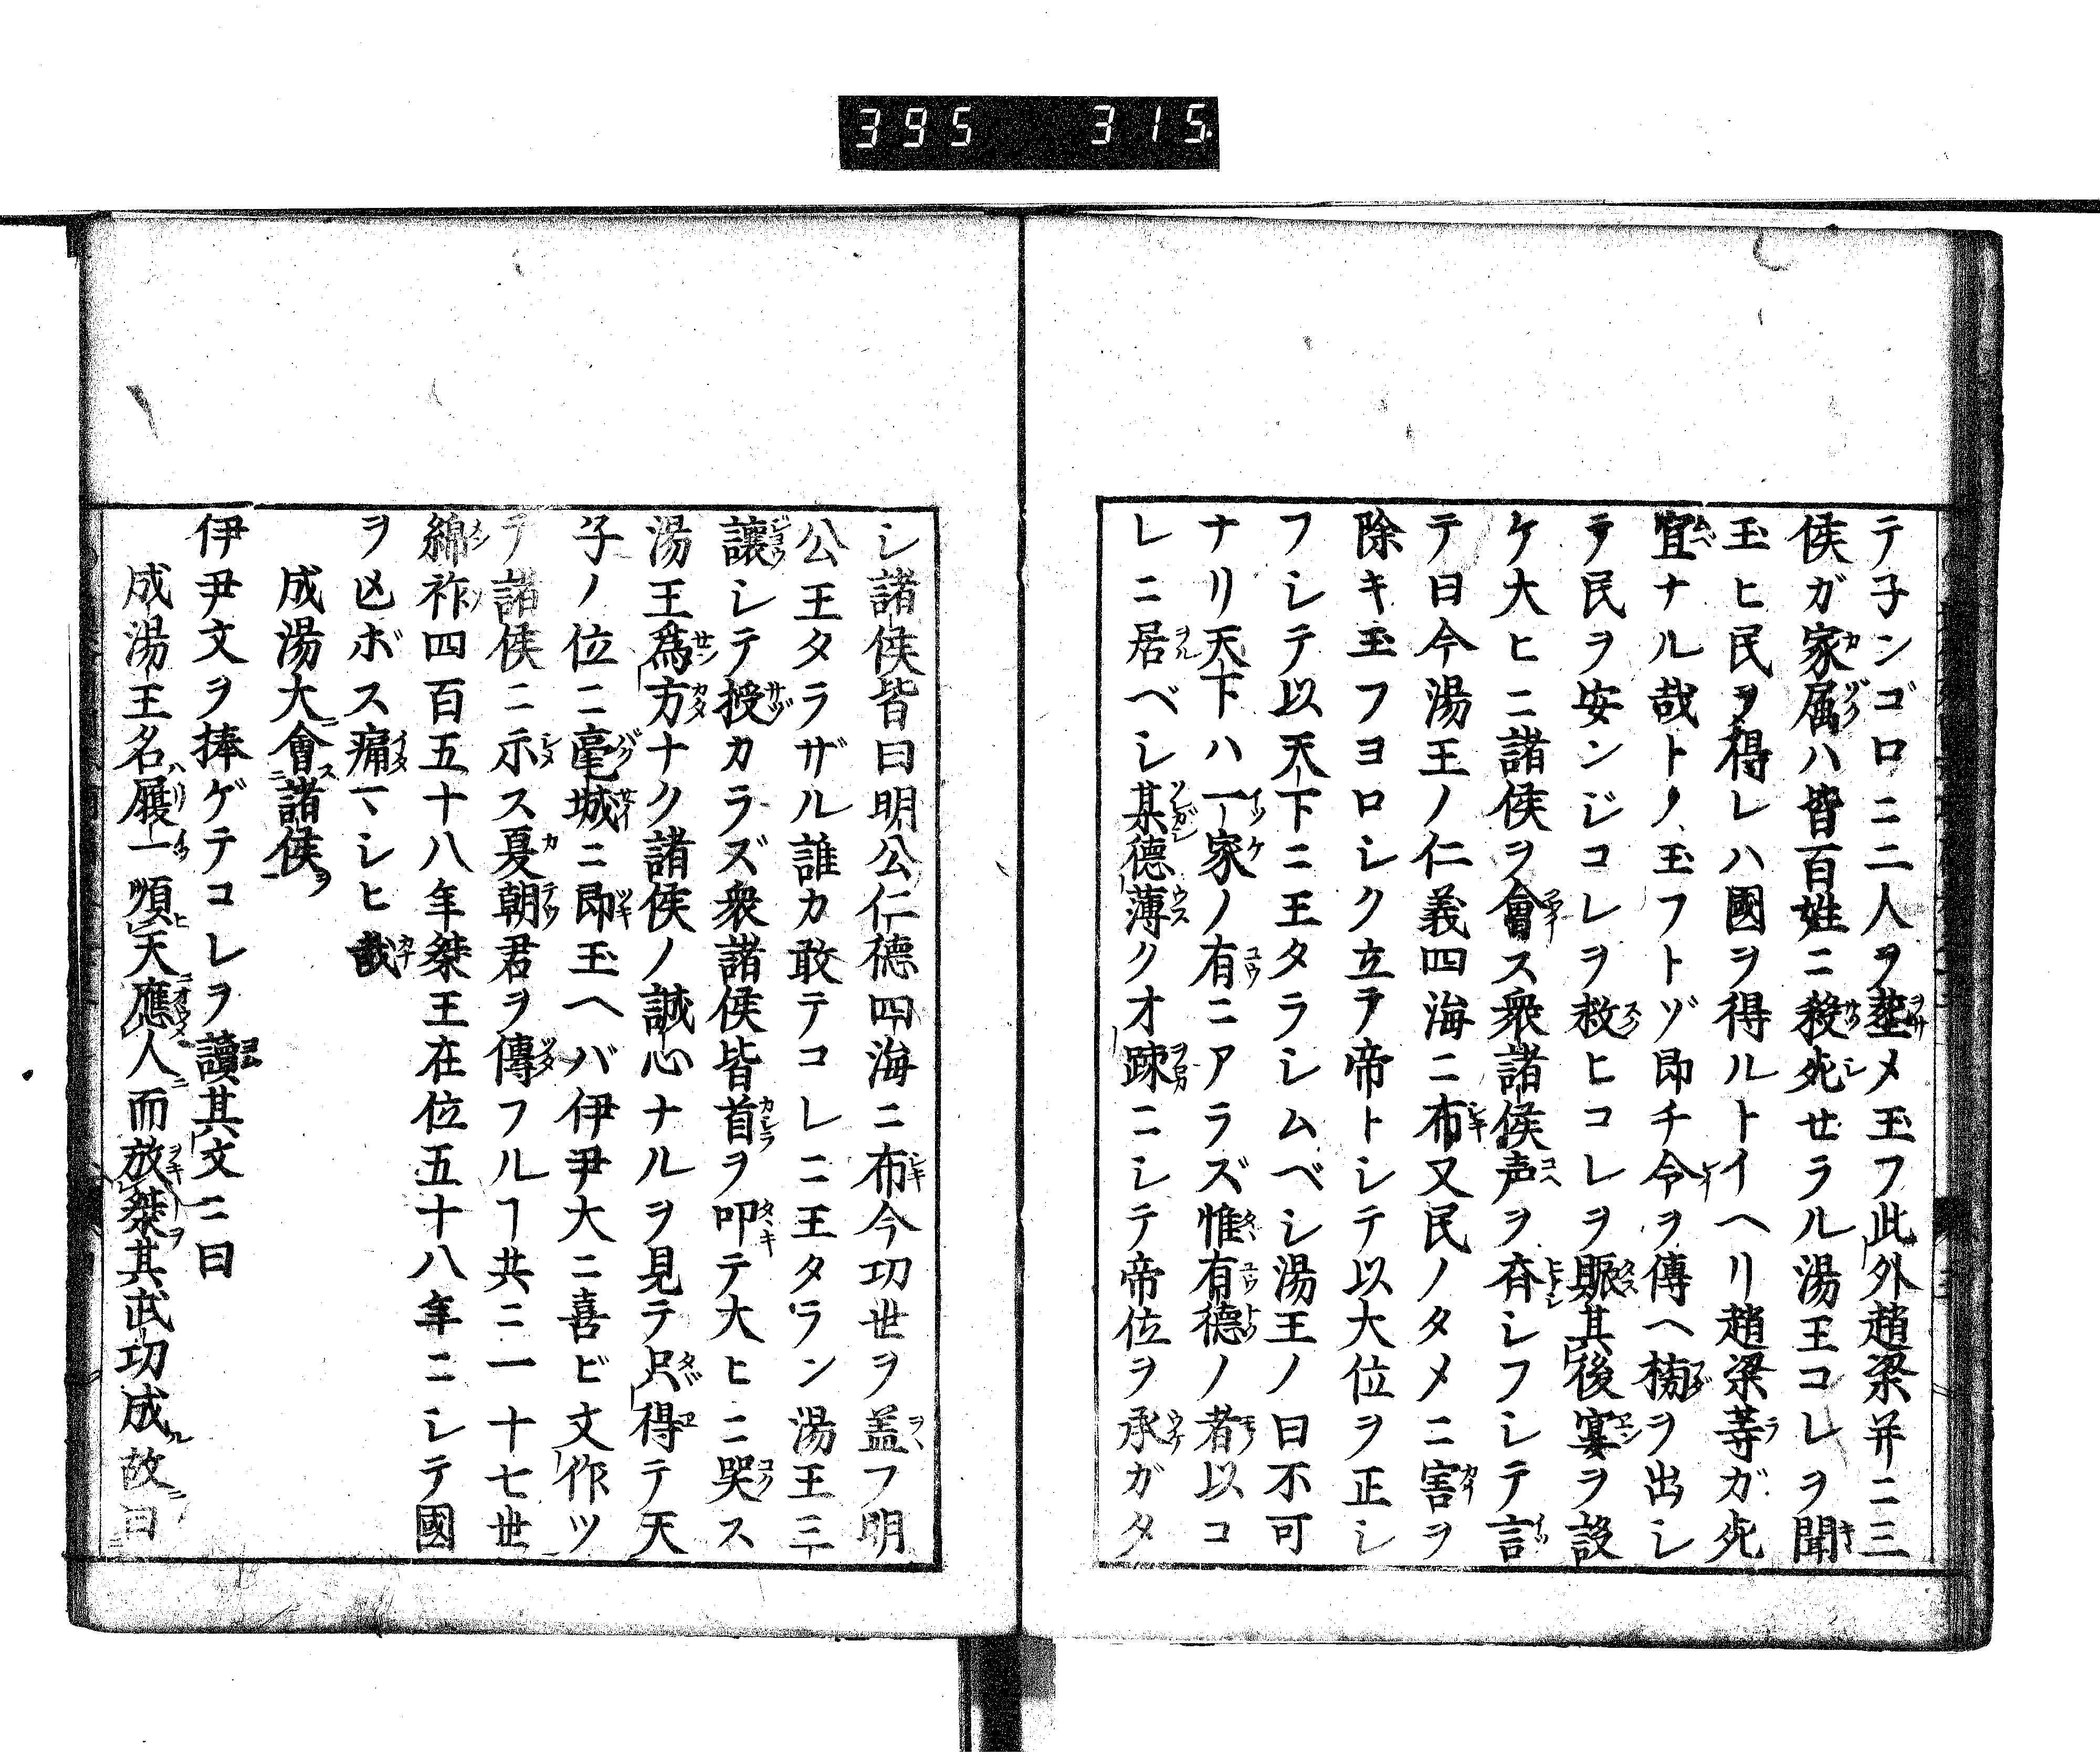 395 315
テ子ンゴロニ二人ヲ塟メ玉フ此外趙梁并ニ三
侯ガ家属ハ皆百姓ニ殺死セラル湯王コレヲ聞
玉ヒ民ヲ得レハ國ヲ得ルトイヘリ趙梁等ガ死
宜ナル哉トノ玉フトヅ即チ令ヲ傳ヘ榜ヲ出シ
テ民ヲ安ンジコレヲ救ヒコレヲ賑其後宴ヲ設
ケ大ヒニ諸侯ヲ會ス衆諸侯声ヲ斉シフシテ言
テ曰今湯王ノ仁義四海ニ布又民ノタメニ害ヲ
除キ玉フヨロシク立ヲ帝トシテ以大位ヲ正シ
フシテ以天下ニ王タラシムベシ湯王ノ曰不可
ナリ天下ハ一家ノ有ニアラズ惟有德ノ者以コ
レニ居ベシ某德薄クオ踈ニシテ帝位ヲ承ガタ
シ諸侯皆曰明公仁德四海ニ布今功世ヲ盖フ明
公王タラザル誰カ敢テコレニ王タラン湯王三
讓シテ授カラズ衆諸侯皆首ヲ叩テ大ヒニ哭ス
湯王爲方ナク諸侯ノ誠心ナルヲ見テ只得テ天
子ノ位ニ亳城ニ即玉ヘバ伊尹大ニ喜ビ文作ツ
テ諸侯ニ示ス夏朝君ヲ傳フルヿ共ニ一十七世
綿祚四百五十八年桀王在位五十八年ニシテ國
ヲ亾ボス痛マシヒ哉
成湯大會諸侯
伊尹文ヲ捧ゲテコレヲ讀其文ニ曰
成湯王名履一順天應人而放桀其武功成故曰